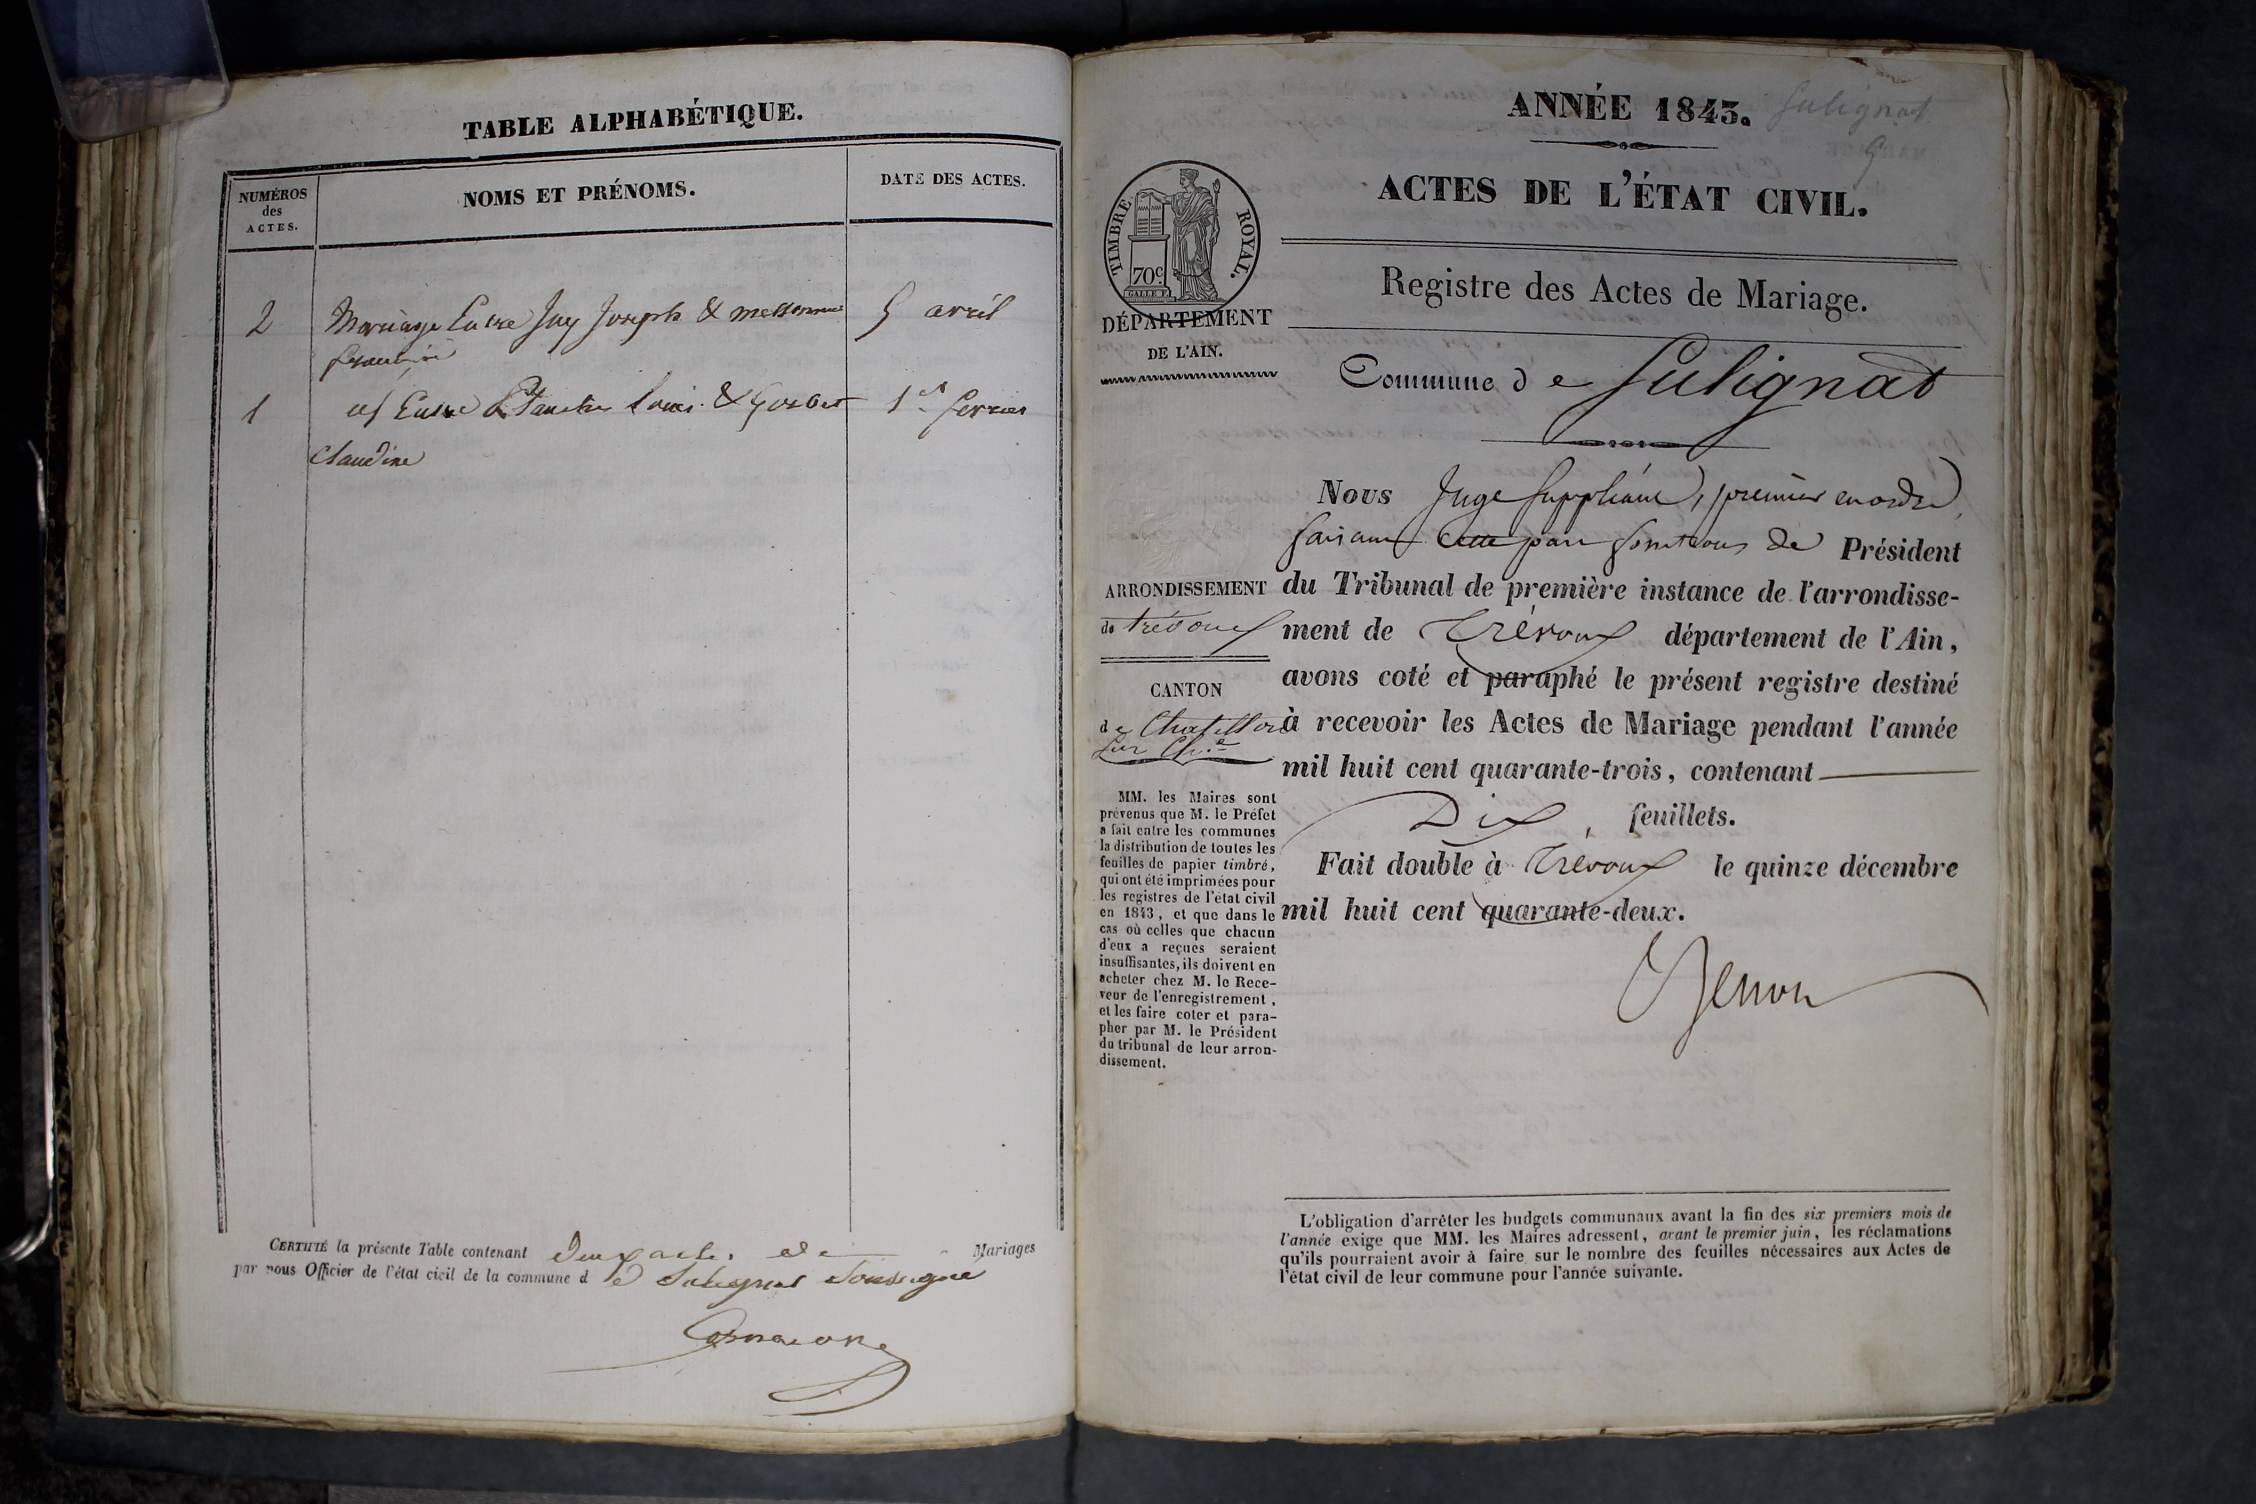 TABLE ALPHABÉTIQUE.
NUMÉROS
des
ACTES.
NOMS ET PRÉNOMS.
DATE DES ACTES.
2 Mariage Entre Jay Joseph & 5 avril
1 id Entre Louis & Gorbet 1er fevrier
Claudine
CERTIFIÉ la présente Table contenant deux actes de Mariages
par nous Officier de l'état civil de la commune de Sulignat Soussigné
ANNÉE 1843. Sulignat
5
ACTES DE L'ÉTAT CIVIL.
TIMBRE ROYAL.
70c
GALLE F.
Registre des Actes de Mariage.
DÉPARTEMENT
DE L'AIN.
Commune de Sulignat
Nous Juge Suppléant, premier en ordre,
faisant cette part fonctions de Président
ARRONDISSEMENT
de trévoux
du Tribunal de première instance de l'arrondisse-
ment de Trévoux département de l'Ain,
avons coté et paraphé le présent registre destiné
à recevoir les Actes de Mariage pendant l'année
mil huit cent quarante-trois, contenant
Dix, feuillets.
Fait double à Trévoux le quinze décembre
mil huit cent quarante-deux.
CANTON
de Chatillon
sur Ch.ne
MM. les Maires sont
prévenus que M. le Préfet
a fait entre les communes
la distribution de toutes les
feuilles de papier timbré,
qui ont été imprimées pour
les registres de l'état civil
en 1843, et que dans le
cas où celles que chacun
d'eux a reçues seraient
insuffisantes, ils doivent en
acheter chez M. le Rece-
veur de l'enregistrement,
et les faire coter et para-
pher par M. le Président
du tribunal de leur arron-
dissement.
L'obligation d'arrêter les budgets communaux avant la fin des six premiers mois de
l'année exige que MM. les Maires adressent, avant le premier juin, les réclamations
qu'ils pourraient avoir à faire sur le nombre des feuilles nécessaires aux Actes de
l'état civil de leur commune pour l'année suivante.